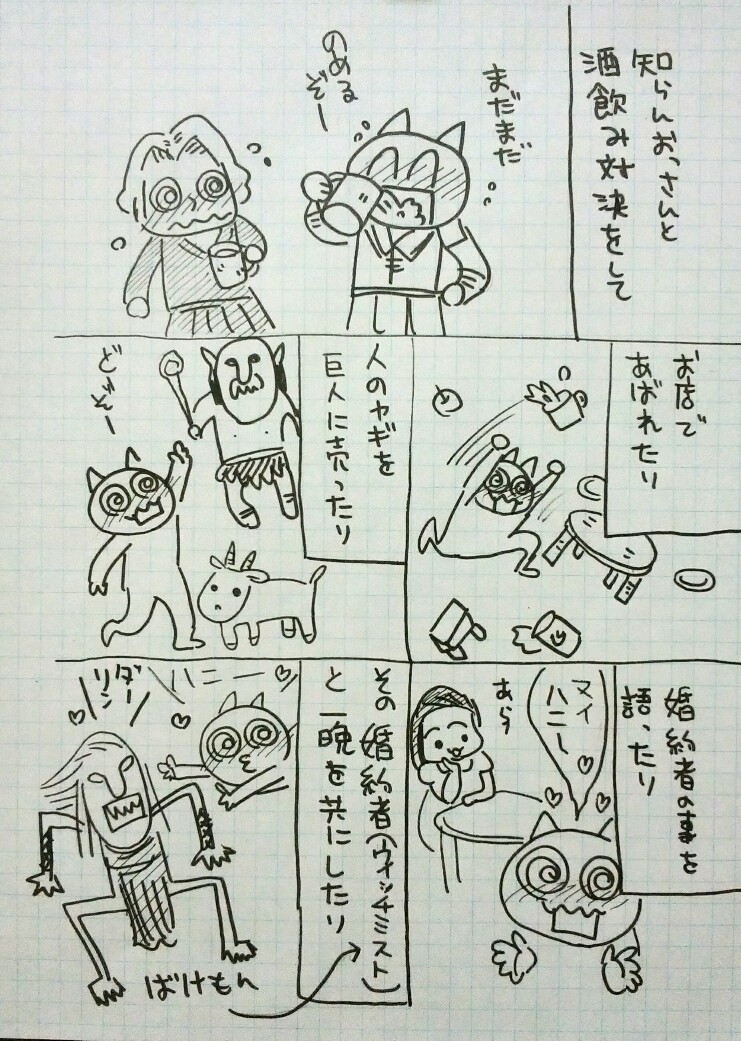 知らんおっさんと
酒飲み対決をして
まだまだ
のめる
ぞー
お店で
あばれたり
人のヤギを
巨人に売ったり
どぞー
婚約者の事を
語ったり
マイ
ハニー
あら
その婚約者(ウィッチミスト)
と一晩を共にしたり
ハニー
ダー
リン
ばけもん